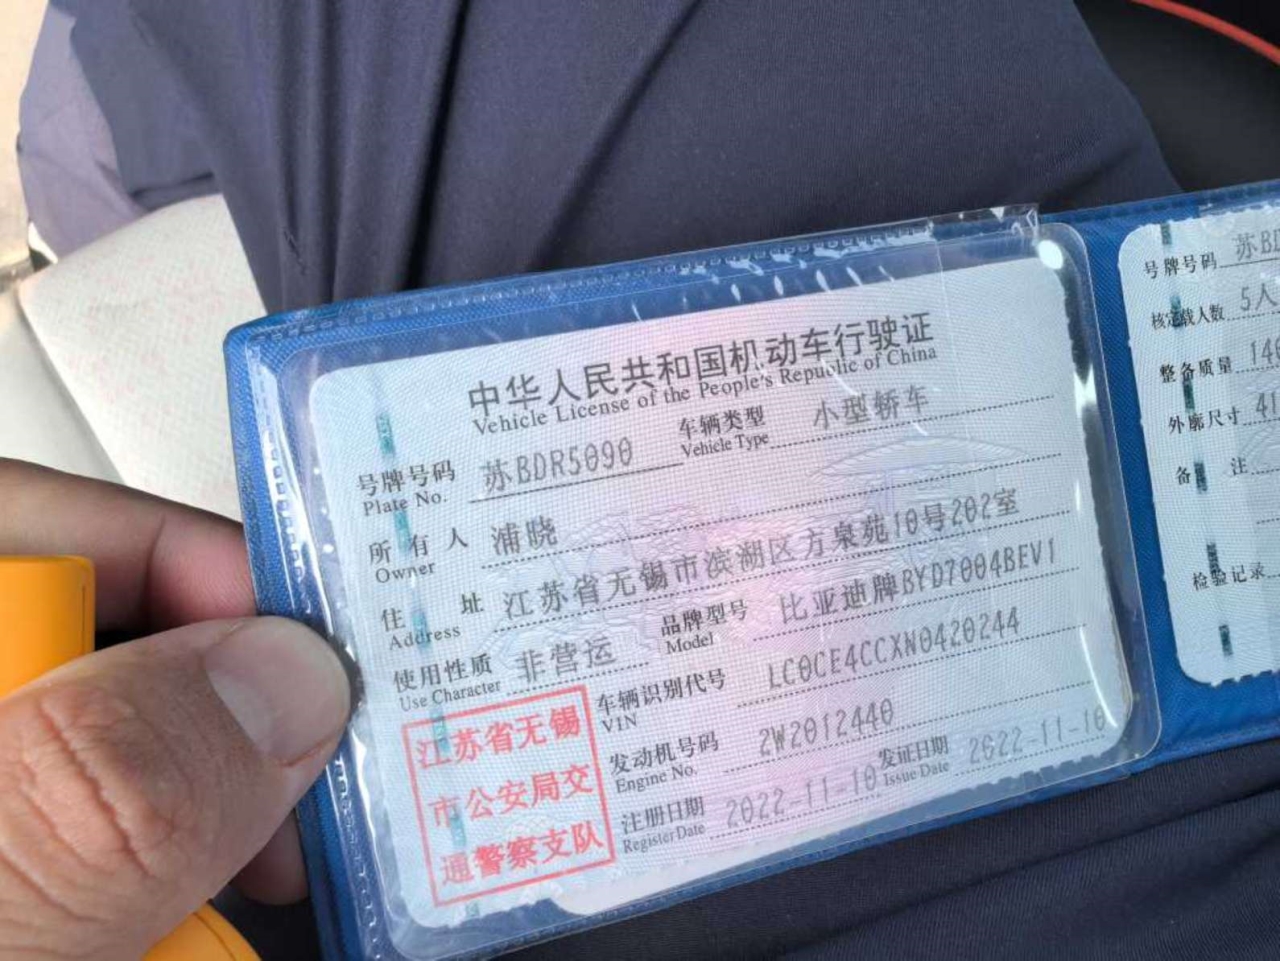 中华人民共和国机动车行驶证
Vehicle License of the People's Republic of China
号牌号码 苏BDR5090 车辆类型 小型轿车
Plate No. Vehicle Type
所有人 浦晓
Owner
住址 江苏省无锡市滨湖区方泉苑10号202室
Address
使用性质 非营运 品牌型号 比亚迪牌BYD7004BEV1
Use Character Model
车辆识别代号 LC0CE4CCXN0420244
VIN
发动机号码 2W2012440
Engine No.
注册日期 2022-11-10 发证日期 2022-11-10
Register Date Issue Date
江苏省无锡
市公安局交
通警察支队
号牌号码 苏BD
核定载人数 5人
整备质量 140
外廓尺寸
备注
检验记录